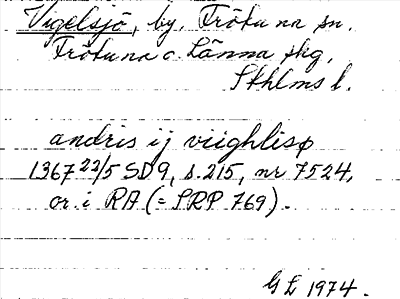 Vigelsjö, by, Frötuna sn.
Frötuna o. Länna skg,
Sthlms l.
andris ij viighlisø
1367 22/5 SD9, s. 215, nr 7524,
or. i RA (= SRP 769).
G E 1974.